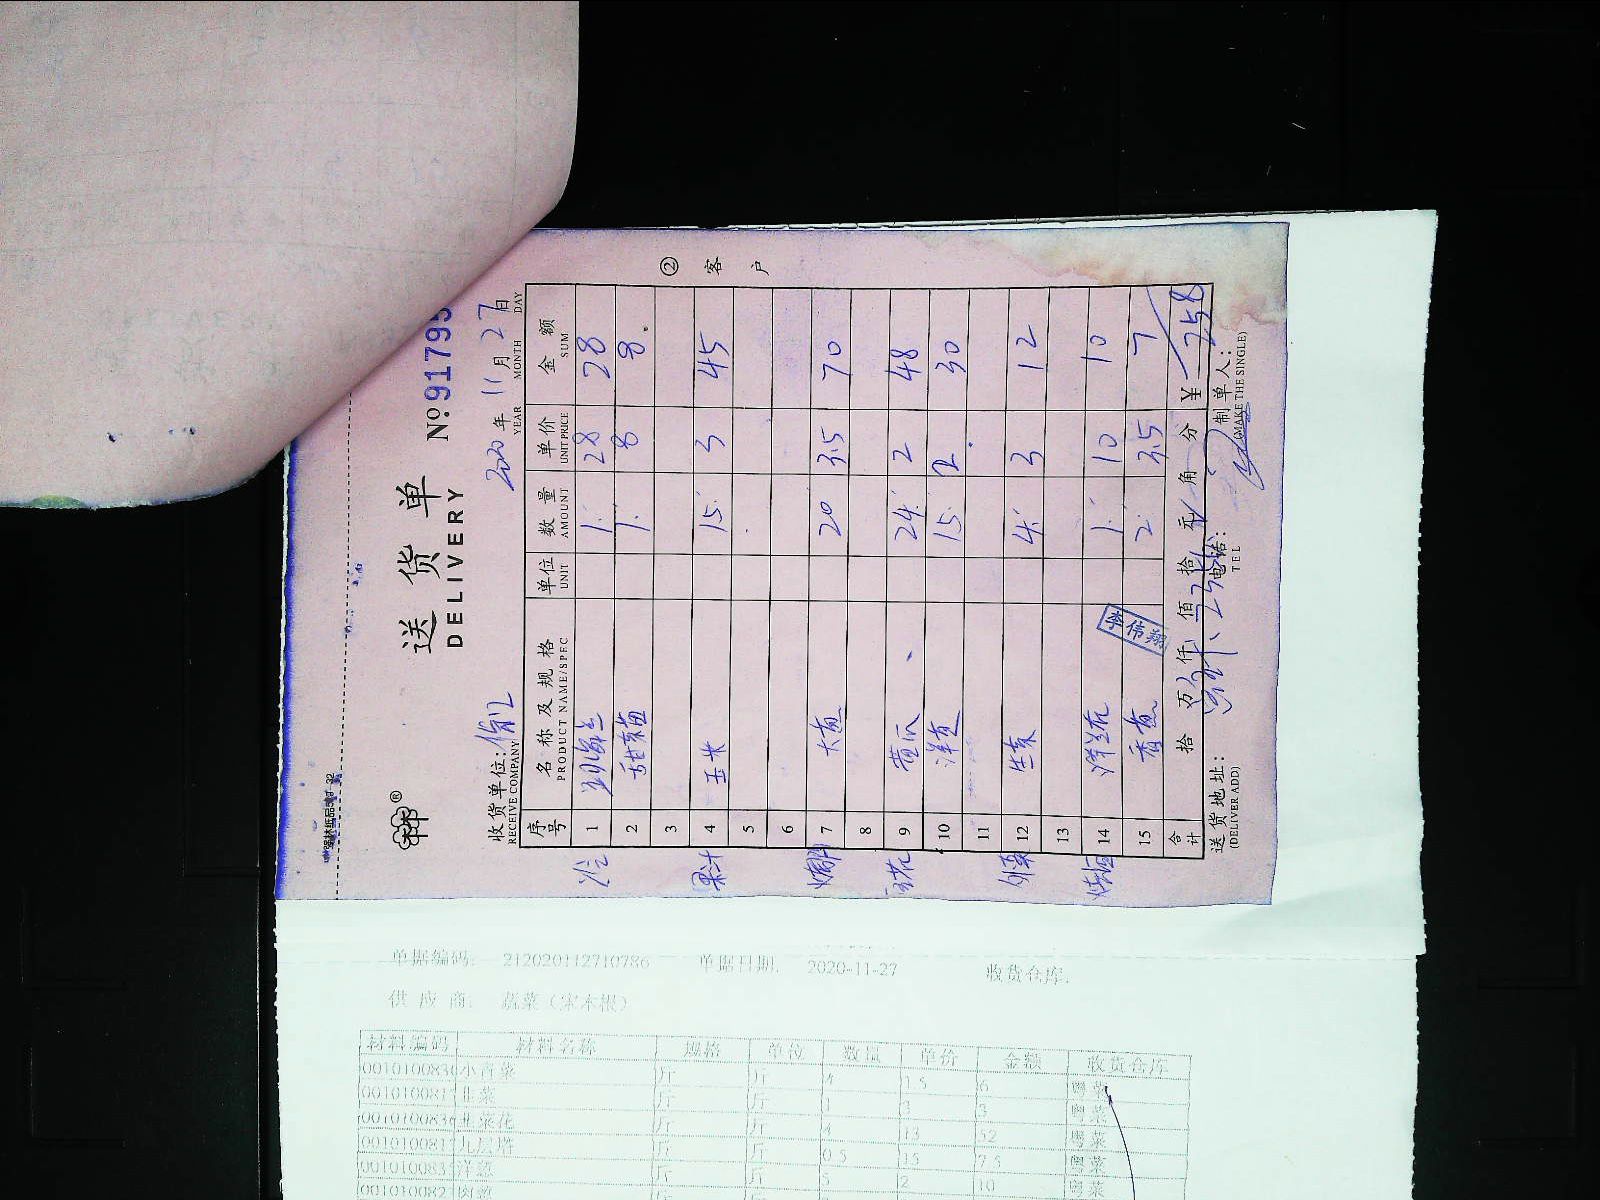 送货单
DELIVERY
№: 91795
收货单位:
RECEIVE COMPANY
2020年 11月 27日
YEAR MONTH DAY
② 客户
序号 名称及规格 单位 数量 单价 金额
PRODUCT NAME/SPEC UNIT AMOUNT UNIT PRICE SUM
1 1 28 28
2 1 8 8
3
果汁 4 玉米 15 3 45
5
6
7 大葱 20 3.5 70
8
9 黄瓜 24 2 48
10 洋葱 15 2 30
11
12 生菜 4 3 12
13
14 1 10 10
15 香葱 2 3.5 7
李伟翔
合计 拾 万 仟 佰 拾 元 角 分 ¥ 258
送货地址: 电话: 制单人:
(DELIVER ADD) TEL (MAKE THE SINGLE)
单据编码: 212020112710786 单据日期: 2020-11-27 收货仓库:
供应商: 蔬菜(宋本根)
材料编码 材料名称 规格 单位 数量 单价 金额 收货仓库
小青菜 斤 斤 4 1.5 6 粤菜
韭菜 斤 斤 1 3 3 粤菜
韭菜花 斤 斤 4 13 52 粤菜
九层塔 斤 斤 0.5 15 7.5 粤菜
洋葱 斤 斤 5 2 10 粤菜